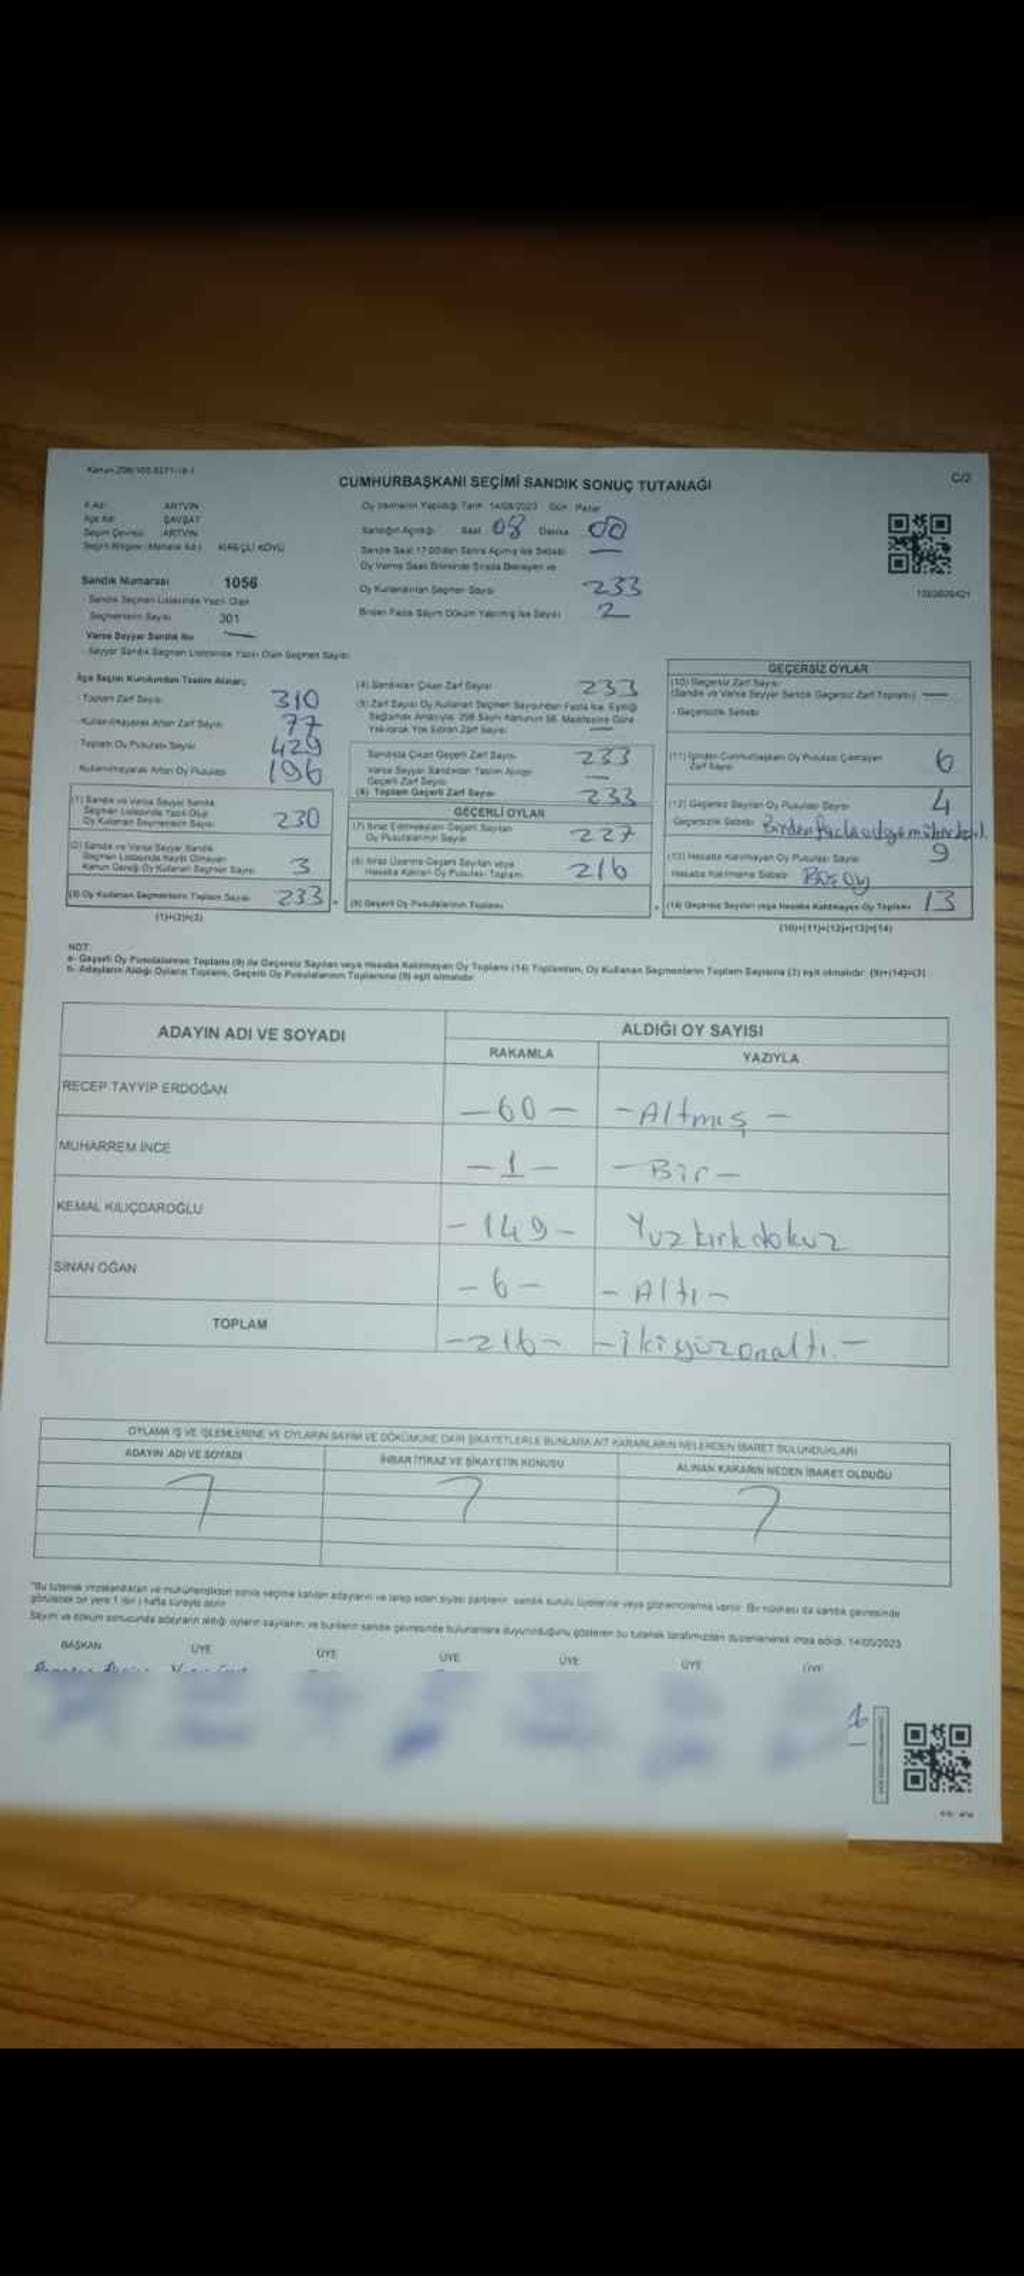 CUMHURBAŞKANI SEÇİMİ SANDIK SONUÇ TUTANAĞI
C/2
İl Adı: ARTVİN
İlçe Adı: ŞAVŞAT
Seçim Çevresi: ARTVİN
KİREÇLİ KÖYÜ
Oy Vermenin Yapıldığı Tarih: 14/05/2023 Gün: Pazar
Sandığın Açıldığı: Saat 08 Dakika 00
Sandık Numarası 1056
Sandık Seçmen Listesinde Yazılı Olan
Seçmenlerin Sayısı 301
Varsa Seyyar Sandık No —
Seyyar Sandık Seçmen Listesinde Yazılı Olan Seçmen Sayısı:
Oy Kullandırılan Seçmen Sayısı 233
Birden Fazla Sayım Döküm Yapılmış İse Sayısı 2
İlçe Seçim Kurulundan Teslim Alınan;
- Toplam Zarf Sayısı 310
- Kullanılmayarak Artan Zarf Sayısı 77
- Toplam Oy Pusulası Sayısı 429
- Kullanılmayarak Artan Oy Pusulası 196
(1) Sandık ve Varsa Seyyar Sandık
Seçmen Listesinde Yazılı Olup
Oy Kullanan Seçmenlerin Sayısı 230
(2) Sandık ve Varsa Seyyar Sandık
Seçmen Listesinde Kayıtlı Olmayan
Kanun Gereği Oy Kullanan Seçmen Sayısı 3
(3) Oy Kullanan Seçmenlerin Toplam Sayısı 233
(1)+(2)=(3)
(4) Sandıktan Çıkan Zarf Sayısı 233
(5) Zarf Sayısı Oy Kullanan Seçmen Sayısından Fazla İse, Eşitliği
Sağlamak Amacıyla, 298 Sayılı Kanunun 98. Maddesine Göre
Yakılarak Yok Edilen Zarf Sayısı —
Sandıkta Çıkan Geçerli Zarf Sayısı 233
Varsa Seyyar Sandıktan Teslim Alınan
Geçerli Zarf Sayısı —
(6) Toplam Geçerli Zarf Sayısı 233
GEÇERLİ OYLAR
(7) İtiraz Edilmeksizin Geçerli Sayılan
Oy Pusulalarının Sayısı 227
(8) İtiraz Üzerine Geçerli Sayılan veya
Hesaba Katılan Oy Pusulası Toplamı 216
(9) Geçerli Oy Pusulalarının Toplamı
GEÇERSİZ OYLAR
(10) Geçersiz Zarf Sayısı
(Sandık ve Varsa Seyyar Sandık Geçersiz Zarf Toplamı) —
- Geçersizlik Sebebi:
(11) İçinden Cumhurbaşkanı Oy Pusulası Çıkmayan
Zarf Sayısı 6
(12) Geçersiz Sayılan Oy Pusulası Sayısı 4
Geçersizlik Sebebi: Birden fazla adaya mühür
(13) Hesaba Katılmayan Oy Pusulası Sayısı 9
Hesaba Katılmama Sebebi: Boş oy
(14) Geçersiz Sayılan veya Hesaba Katılmayan Oy Toplamı 13
(10)+(11)+(12)+(13)=(14)
NOT:
a- Geçerli Oy Pusulalarının Toplamı (9) ile Geçersiz Sayılan veya Hesaba Katılmayan Oy Toplamı (14) Toplamının, Oy Kullanan Seçmenlerin Toplam Sayısına (3) eşit olmalıdır. (9)+(14)=(3)
b- Adayların Aldığı Oyların Toplamı, Geçerli Oy Pusulalarının Toplamına (9) eşit olmalıdır.
ADAYIN ADI VE SOYADI
ALDIĞI OY SAYISI
RAKAMLA
YAZIYLA
RECEP TAYYİP ERDOĞAN -60- -Altmış-
MUHARREM İNCE -1- -Bir-
KEMAL KILIÇDAROĞLU -149- Yuzkırkdokuz
SİNAN OĞAN -6- -Altı-
TOPLAM -216- -ikiyüzonaltı.-
OYLAMA İŞ VE İŞLEMLERİNE VE OYLARIN SAYIM VE DÖKÜMÜNE DAİR ŞİKAYETLERLE BUNLARA AİT KARARLARIN NELERDEN İBARET BULUNDUKLARI
ADAYIN ADI VE SOYADI
İHBAR İTİRAZ VE ŞİKAYETİN KONUSU
ALINAN KARARIN NEDEN İBARET OLDUĞU
Sayım ve döküm sonucunda adayların aldığı oyların sayılarını ve bunların sandık çevresinde bulunanlara duyurulduğunu gösteren bu tutanak tarafımızdan düzenlenerek imza edildi. 14/05/2023
BAŞKAN ÜYE ÜYE ÜYE ÜYE ÜYE ÜYE